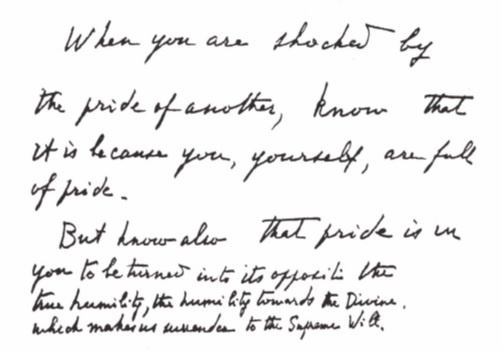 When you are shocked by
the pride of another, know that
it is because you, yourself, are full
of pride.
But know also that pride is in
you to be turned into its opposite the
true humility, the humility towards the Divine.
which makes us surrender to the Supreme Will.